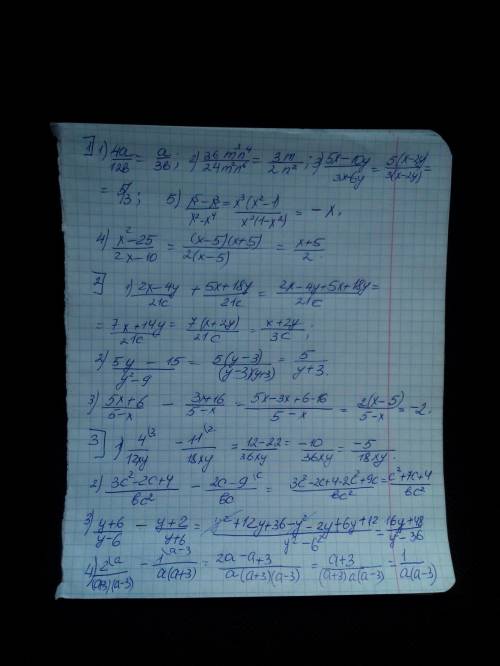 1] 1) 4a/12b = a/3b; 2) 36m³n⁴/24m²n⁶ = 3m/2n²; 3) 5x-10y/3x-6y = 5(x-2y)/3(x-2y) =
= 5/3; 5) x⁵-x³/x³-x⁴ = x³(x²-1)/x²(1-x²) = -x.
4) x²-25/2x-10 = (x-5)(x+5)/2(x-5) = x+5/2.
2] 1) 2x-4y/21c + 5x+18y/21c = 2x-4y+5x+18y/21c =
= 7x+14y/21c = 7(x+2y)/21c = x+2y/3c;
2) 5y-15/y²-9 = 5(y-3)/(y-3)(y+3) = 5/y+3.
3) 5x+6/5-x - 3x+16/5-x = 5x-3x+6-16/5-x = 2(x-5)/5-x = -2.
3] 1) 4\3/12xy - 11\2/18xy = 12-22/36xy = -10/36xy = -5/18xy.
2) 3c²-2c+4/bc² - 2c-9\c/bc = 3c²-2c+4-2c²+9c/bc² = c²+7c+4/bc²
3) y+6/y-6 - y+2/y+6 = y²+12y+36-y²-2y+6y+12/y²-6² = 16y+48/y²-36
4) 2\a/(a+3)(a-3) - 1\a-3/a(a+3) = 2a-a+3/a(a+3)(a-3) = a+3/(a+3)a(a-3) = 1/a(a-3)